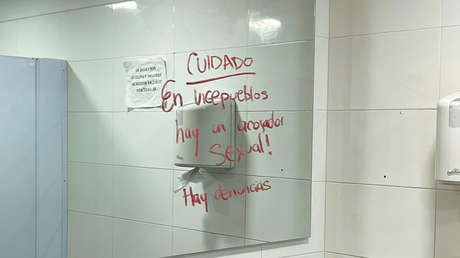 CUIDADO
En vicepueblos
hay un acosador
sexual!
Hay denuncias